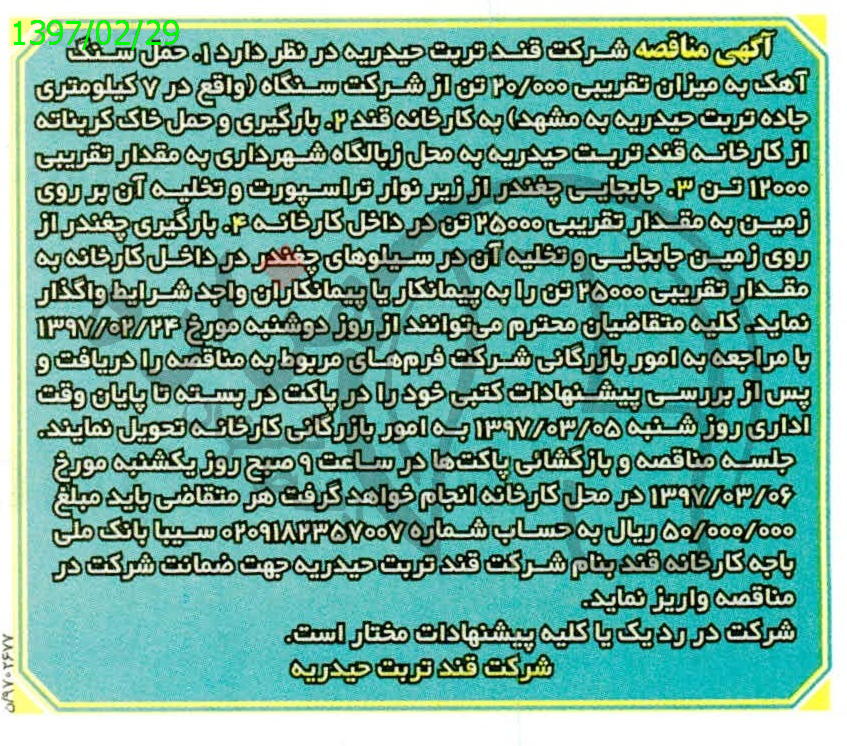 1397/02/29
آگهی مناقصه شرکت قند تربت حیدریه در نظر دارد ۱. حمل سنگ
آهک به میزان تقریبی ۲۰/۰۰۰ تن از شرکت سنگاه (واقع در ۷ کیلومتری
جاده تربت حیدریه به مشهد) به کارخانه قند ۲. بارگیری و حمل خاک کربناته
از کارخانه قند تربت حیدریه به محل زبالگاه شهرداری به مقدار تقریبی
۱۲۰۰۰ تن ۳. جابجایی چغندر از زیر نوار تراسپورت و تخلیه آن بر روی
زمین به مقدار تقریبی ۲۵۰۰۰ تن در داخل کارخانه ۴. بارگیری چغندر از
روی زمین جابجایی و تخلیه آن در سیلوهای چغندر در داخل کارخانه به
مقدار تقریبی ۲۵۰۰۰ تن را به پیمانکار یا پیمانکاران واجد شرایط واگذار
نماید. کلیه متقاضیان محترم می‌توانند از روز دوشنبه مورخ ۱۳۹۷/۰۲/۲۴
با مراجعه به امور بازرگانی شرکت فرم‌های مربوط به مناقصه را دریافت و
پس از بررسی پیشنهادات کتبی خود را در پاکت در بسته تا پایان وقت
اداری روز شنبه ۱۳۹۷/۰۳/۰۵ به امور بازرگانی کارخانه تحویل نمایند.
جلسه مناقصه و بازگشائی پاکت‌ها در ساعت ۹ صبح روز یکشنبه مورخ
۱۳۹۷/۰۳/۰۶ در محل کارخانه انجام خواهد گرفت هر متقاضی باید مبلغ
۵۰/۰۰۰/۰۰۰ ریال به حساب شماره ۰۲۰۹۱۸۲۳۵۷۰۰۷ سیبا بانک ملی
باجه کارخانه قند بنام شرکت قند تربت حیدریه جهت ضمانت شرکت در
مناقصه واریز نماید.
شرکت در رد یک یا کلیه پیشنهادات مختار است.
شرکت قند تربت حیدریه
۵/۹۷۰۲۶۷۷